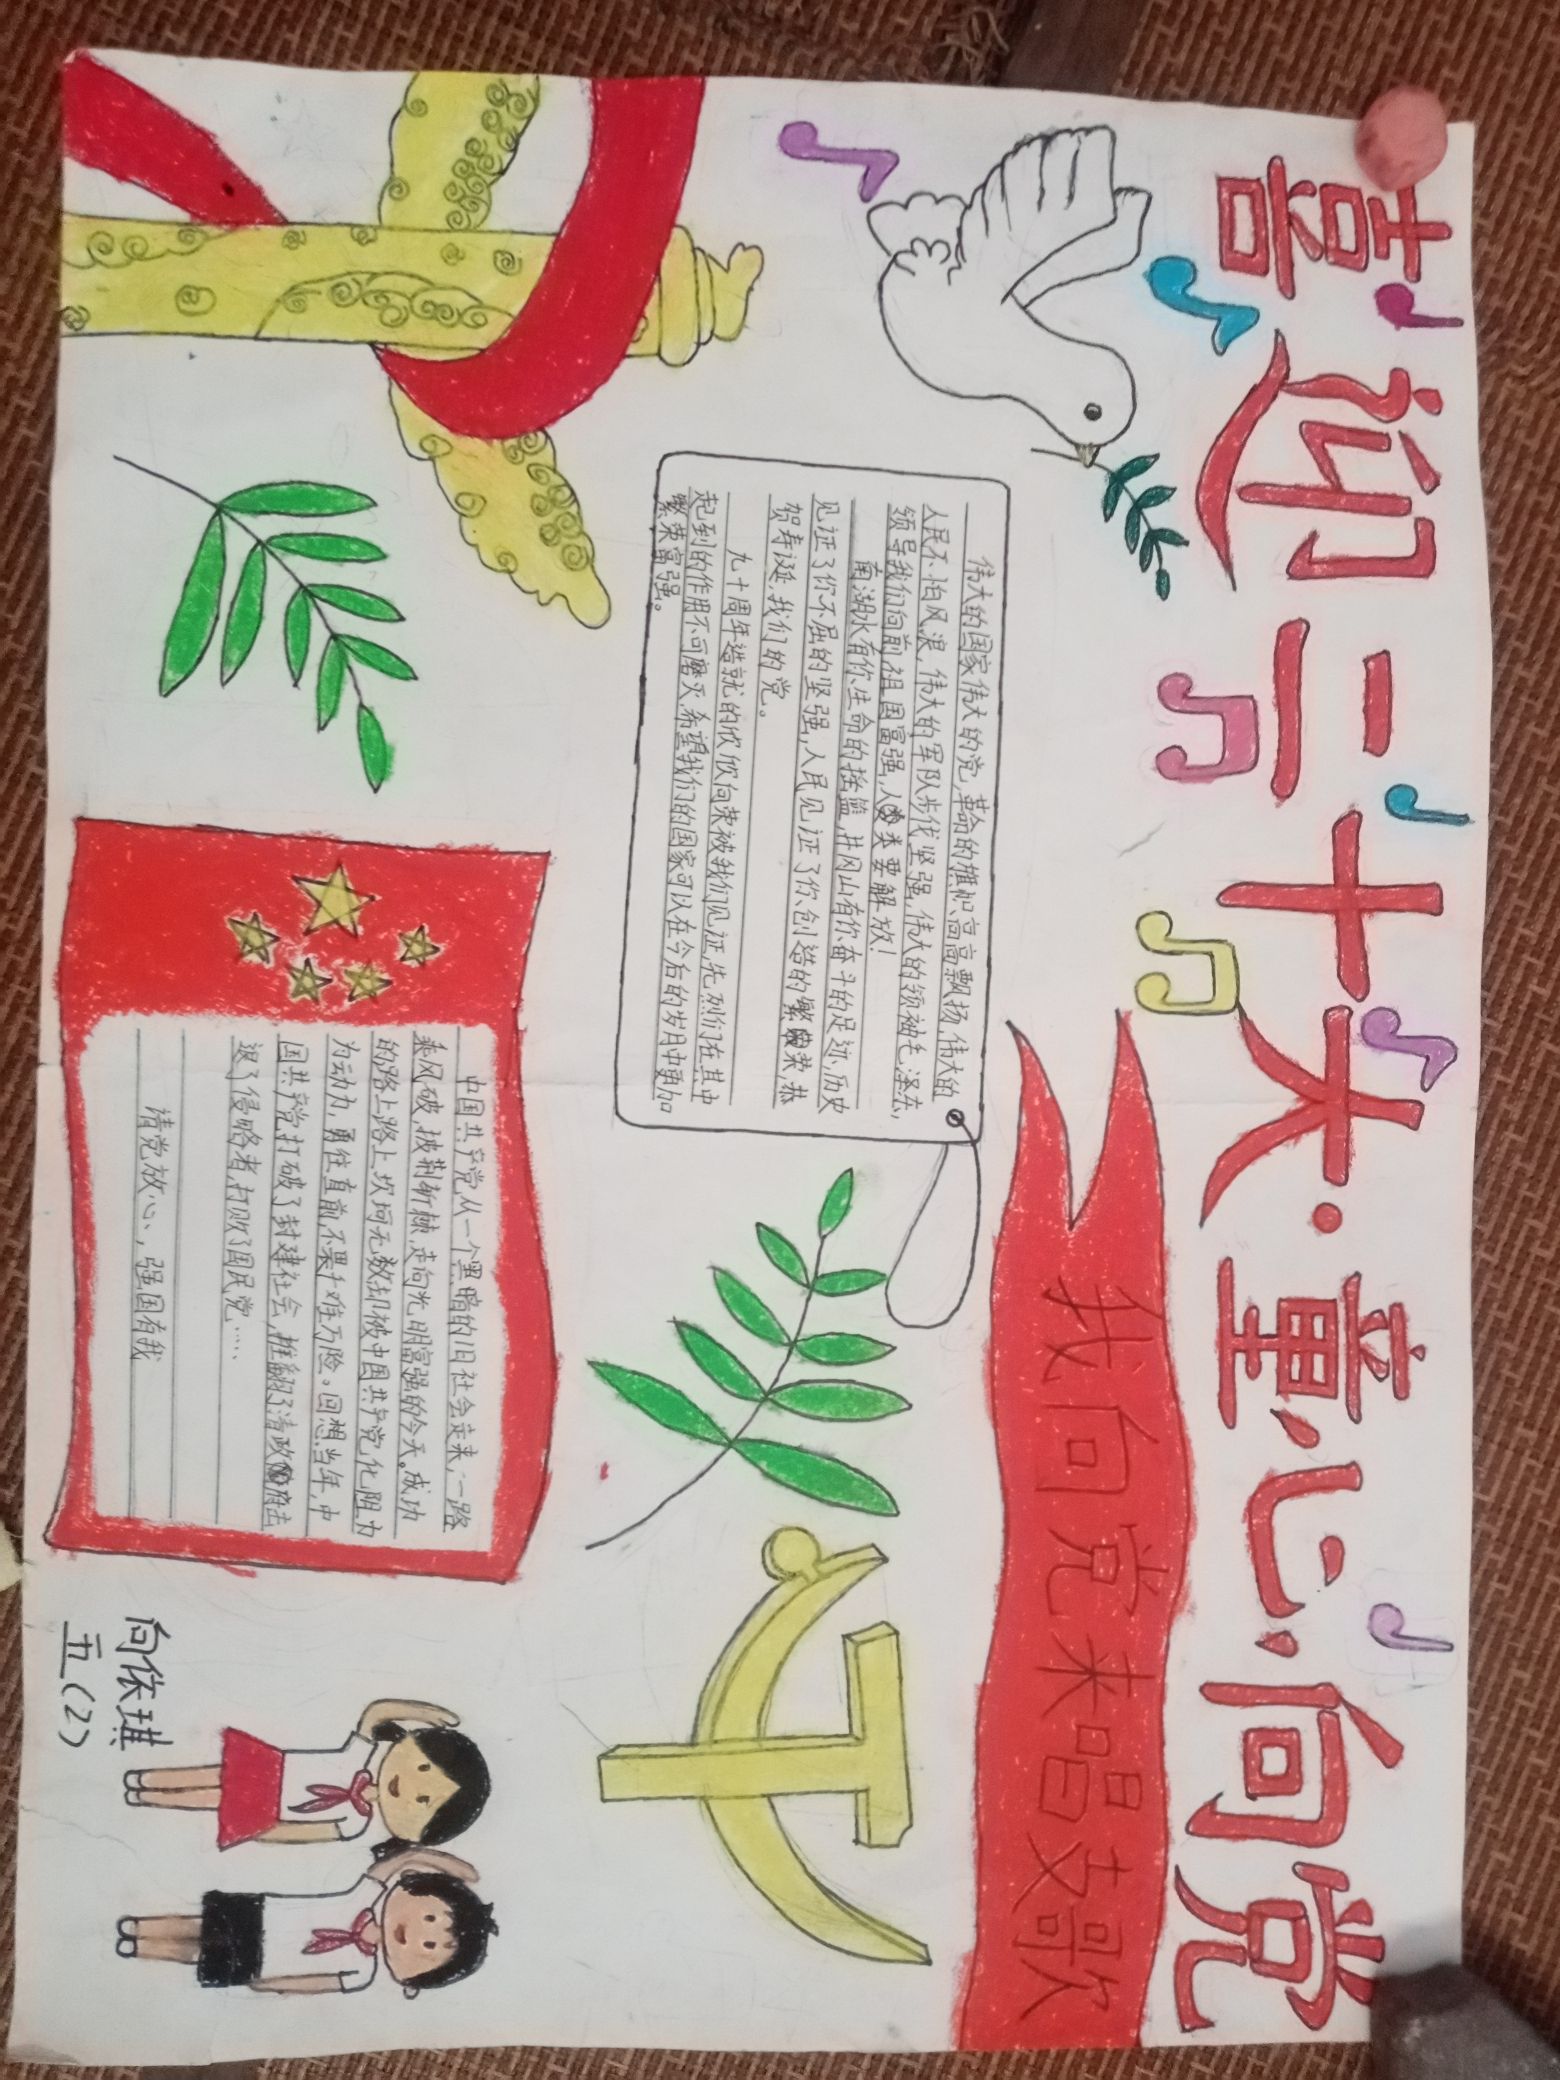 喜迎二十大·童心·向党
我向党来唱支歌
伟大的国家伟大的党,革命的旗帜高高飘扬,伟大的
人民不怕风浪,伟大的军队步伐坚强,伟大的领袖毛泽东,
领导我们向前,祖国富强,人类要解放!
南湖水有你生命的摇篮,井冈山有你奋斗的足迹,历史
见证了你不屈的坚强,人民见证了你创造的繁荣,恭
贺寿诞,我们的党。
九十周年造就的欣欣向荣被我们见证,先烈们在其中
起到的作用不可磨灭,希望我们的国家可以在今后的岁月中更加
繁荣富强。
中国共产党从一个黑暗的旧社会走来,一路
乘风破,披荆斩棘,走向光明富强的今天。成功
的路上路上坎坷无数却被中国共产党化阻力
为动力,勇往直前,不畏千难万险。回想当年,中
国共产党打破了封建社会,推翻了清政府击
退了侵略者,打败了国民党……
请党放心,强国有我
向依琪
五(2)